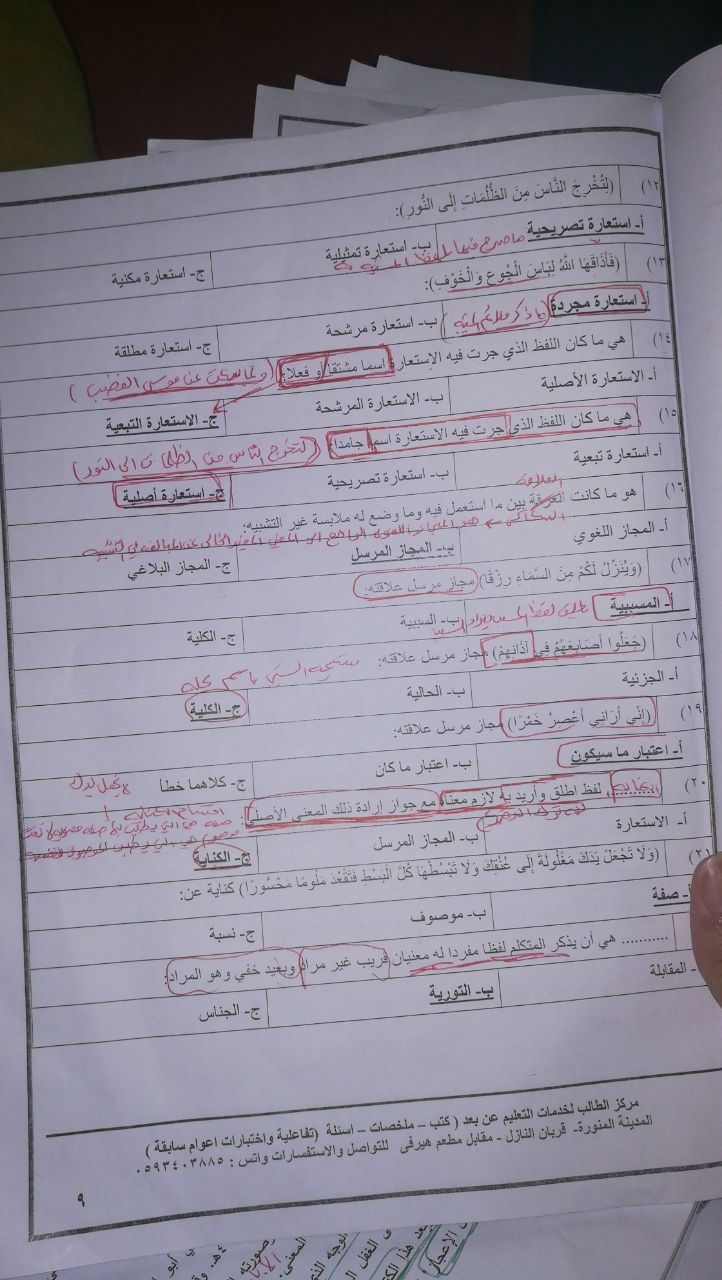 ١٢) (لِتُخْرِجَ النَّاسَ مِنَ الظُّلُمَاتِ إِلَى النُّورِ):
أ- استعارة تصريحية ب- استعارة تمثيلية ج- استعارة مكنية
ما صرح فيها بلفظ المشبه به
١٣) (فَأَذَاقَهَا اللَّهُ لِبَاسَ الْجُوعِ وَالْخَوْفِ):
أ- استعارة مجردة (ما ذكر ملائم المشبه) ب- استعارة مرشحة ج- استعارة مطلقة
١٤) هي ما كان اللفظ الذي جرت فيه الاستعارة اسما مشتقا أو فعلا: (ولما سكت عن موسى الغضب)
أ- الاستعارة الأصلية ب- الاستعارة المرشحة ج- الاستعارة التبعية
١٥) هي ما كان اللفظ الذي جرت فيه الاستعارة اسما جامدا: (لتخرج الناس من الظلمات الى النور)
أ- استعارة تبعية ب- استعارة تصريحية ج- استعارة أصلية
العلاقة
١٦) هو ما كانت العرقة بين ما استعمل فيه وما وضع له ملابسة غير التشبيه:
السكاكي هو المجاز اللغوي الراجع الى المعنى
أ- المجاز اللغوي ب- المجاز المرسل ج- المجاز البلاغي
١٧) (وَيُنَزِّلُ لَكُمْ مِنَ السَّمَاءِ رِزْقًا) مجاز مرسل علاقته:
أ- المسببية ب- السببية ج- الكلية
يطلق لفظ
١٨) (جَعَلُوا أَصَابِعَهُمْ فِي آذَانِهِمْ) مجاز مرسل علاقته: باسم
أ- الجزئية ب- الحالية ج- الكلية
١٩) (إِنِّي أَرَانِي أَعْصِرُ خَمْرًا) مجاز مرسل علاقته:
أ- اعتبار ما سيكون ب- اعتبار ما كان ج- كلاهما خطأ
٢٠) .......... لفظ اطلق وأريد به لازم معناه مع جواز إرادة ذلك المعنى الأصلي:
أ- الاستعارة ب- المجاز المرسل ج- الكناية
اقسام الكناية
٢١) (وَلَا تَجْعَلْ يَدَكَ مَغْلُولَةً إِلَى عُنُقِكَ وَلَا تَبْسُطْهَا كُلَّ الْبَسْطِ فَتَقْعُدَ مَلُومًا مَحْسُورًا) كناية عن:
أ- صفة ب- موصوف ج- نسبة
........... هي أن يذكر المتكلم لفظا مفردا له معنيان قريب غير مراد وبعيد خفي وهو المراد:
- المقابلة ب- التورية ج- الجناس
مركز الطالب لخدمات التعليم عن بعد ( كتب – ملخصات – اسئلة (تفاعلية واختبارات اعوام سابقة )
المدينة المنورة- قربان النازل - مقابل مطعم هيرفى للتواصل والاستفسارات واتس : ٠٥٩٣٤٠٣٨٨٥
٩